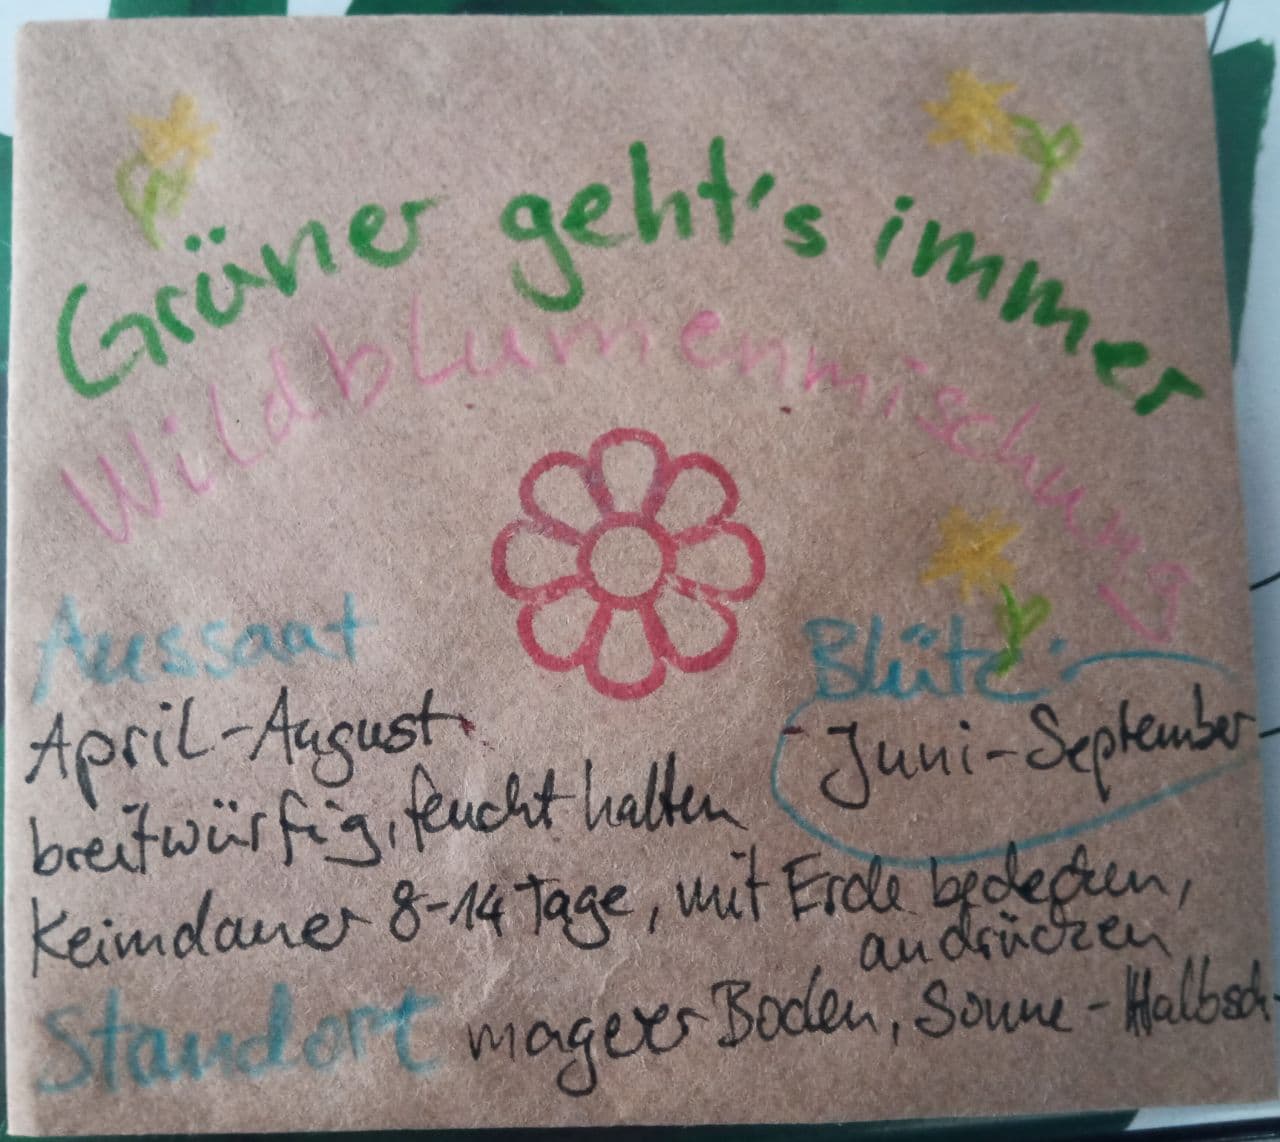 Grüner geht's immer
Wildblumenmischung
Aussaat
April-August
breitwürfig, feucht halten
Keimdauer 8-14 Tage, mit Erde bedecken,
andrücken
Blüte:
Juni-September
Standort magerer Boden, Sonne-Halbsch.